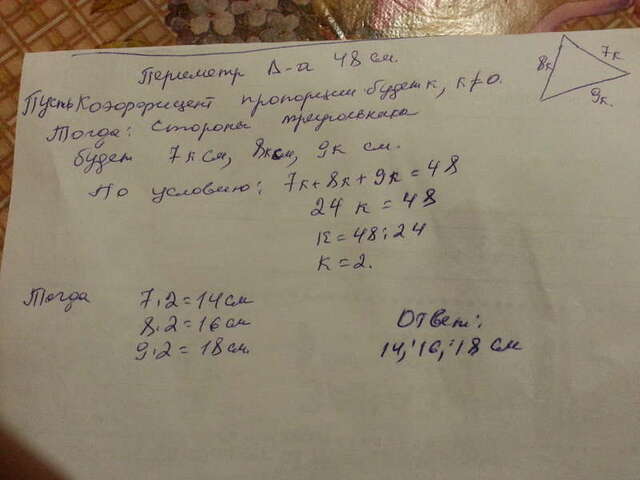 Периметр Δ-а 48 см.
8к
7к
9к.
Пусть Коэффицент пропорции будет к, к≠0.
Тогда: стороны треугольника
будет 7к см, 8к см, 9к см.
По условию: 7к+8к+9к=48
24 к = 48
к=48:24
к=2.
Тогда 7·2=14 см
8·2=16 см
9·2=18 см.
Ответ:
14, 16, 18 см